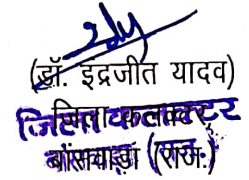 (डॉ. इंद्रजीत यादव)
जिला कलक्टर
बांसवाड़ा (राज.)